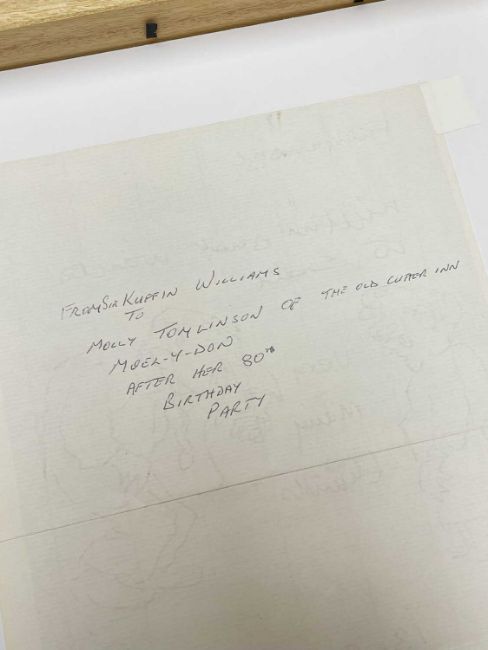 FROM SIR KUFFIN WILLIAMS
TO
MOLLY TOMLINSON OF THE OLD CUTTER INN
MOEL-Y-DON
AFTER HER 80TH
BIRTHDAY
PARTY